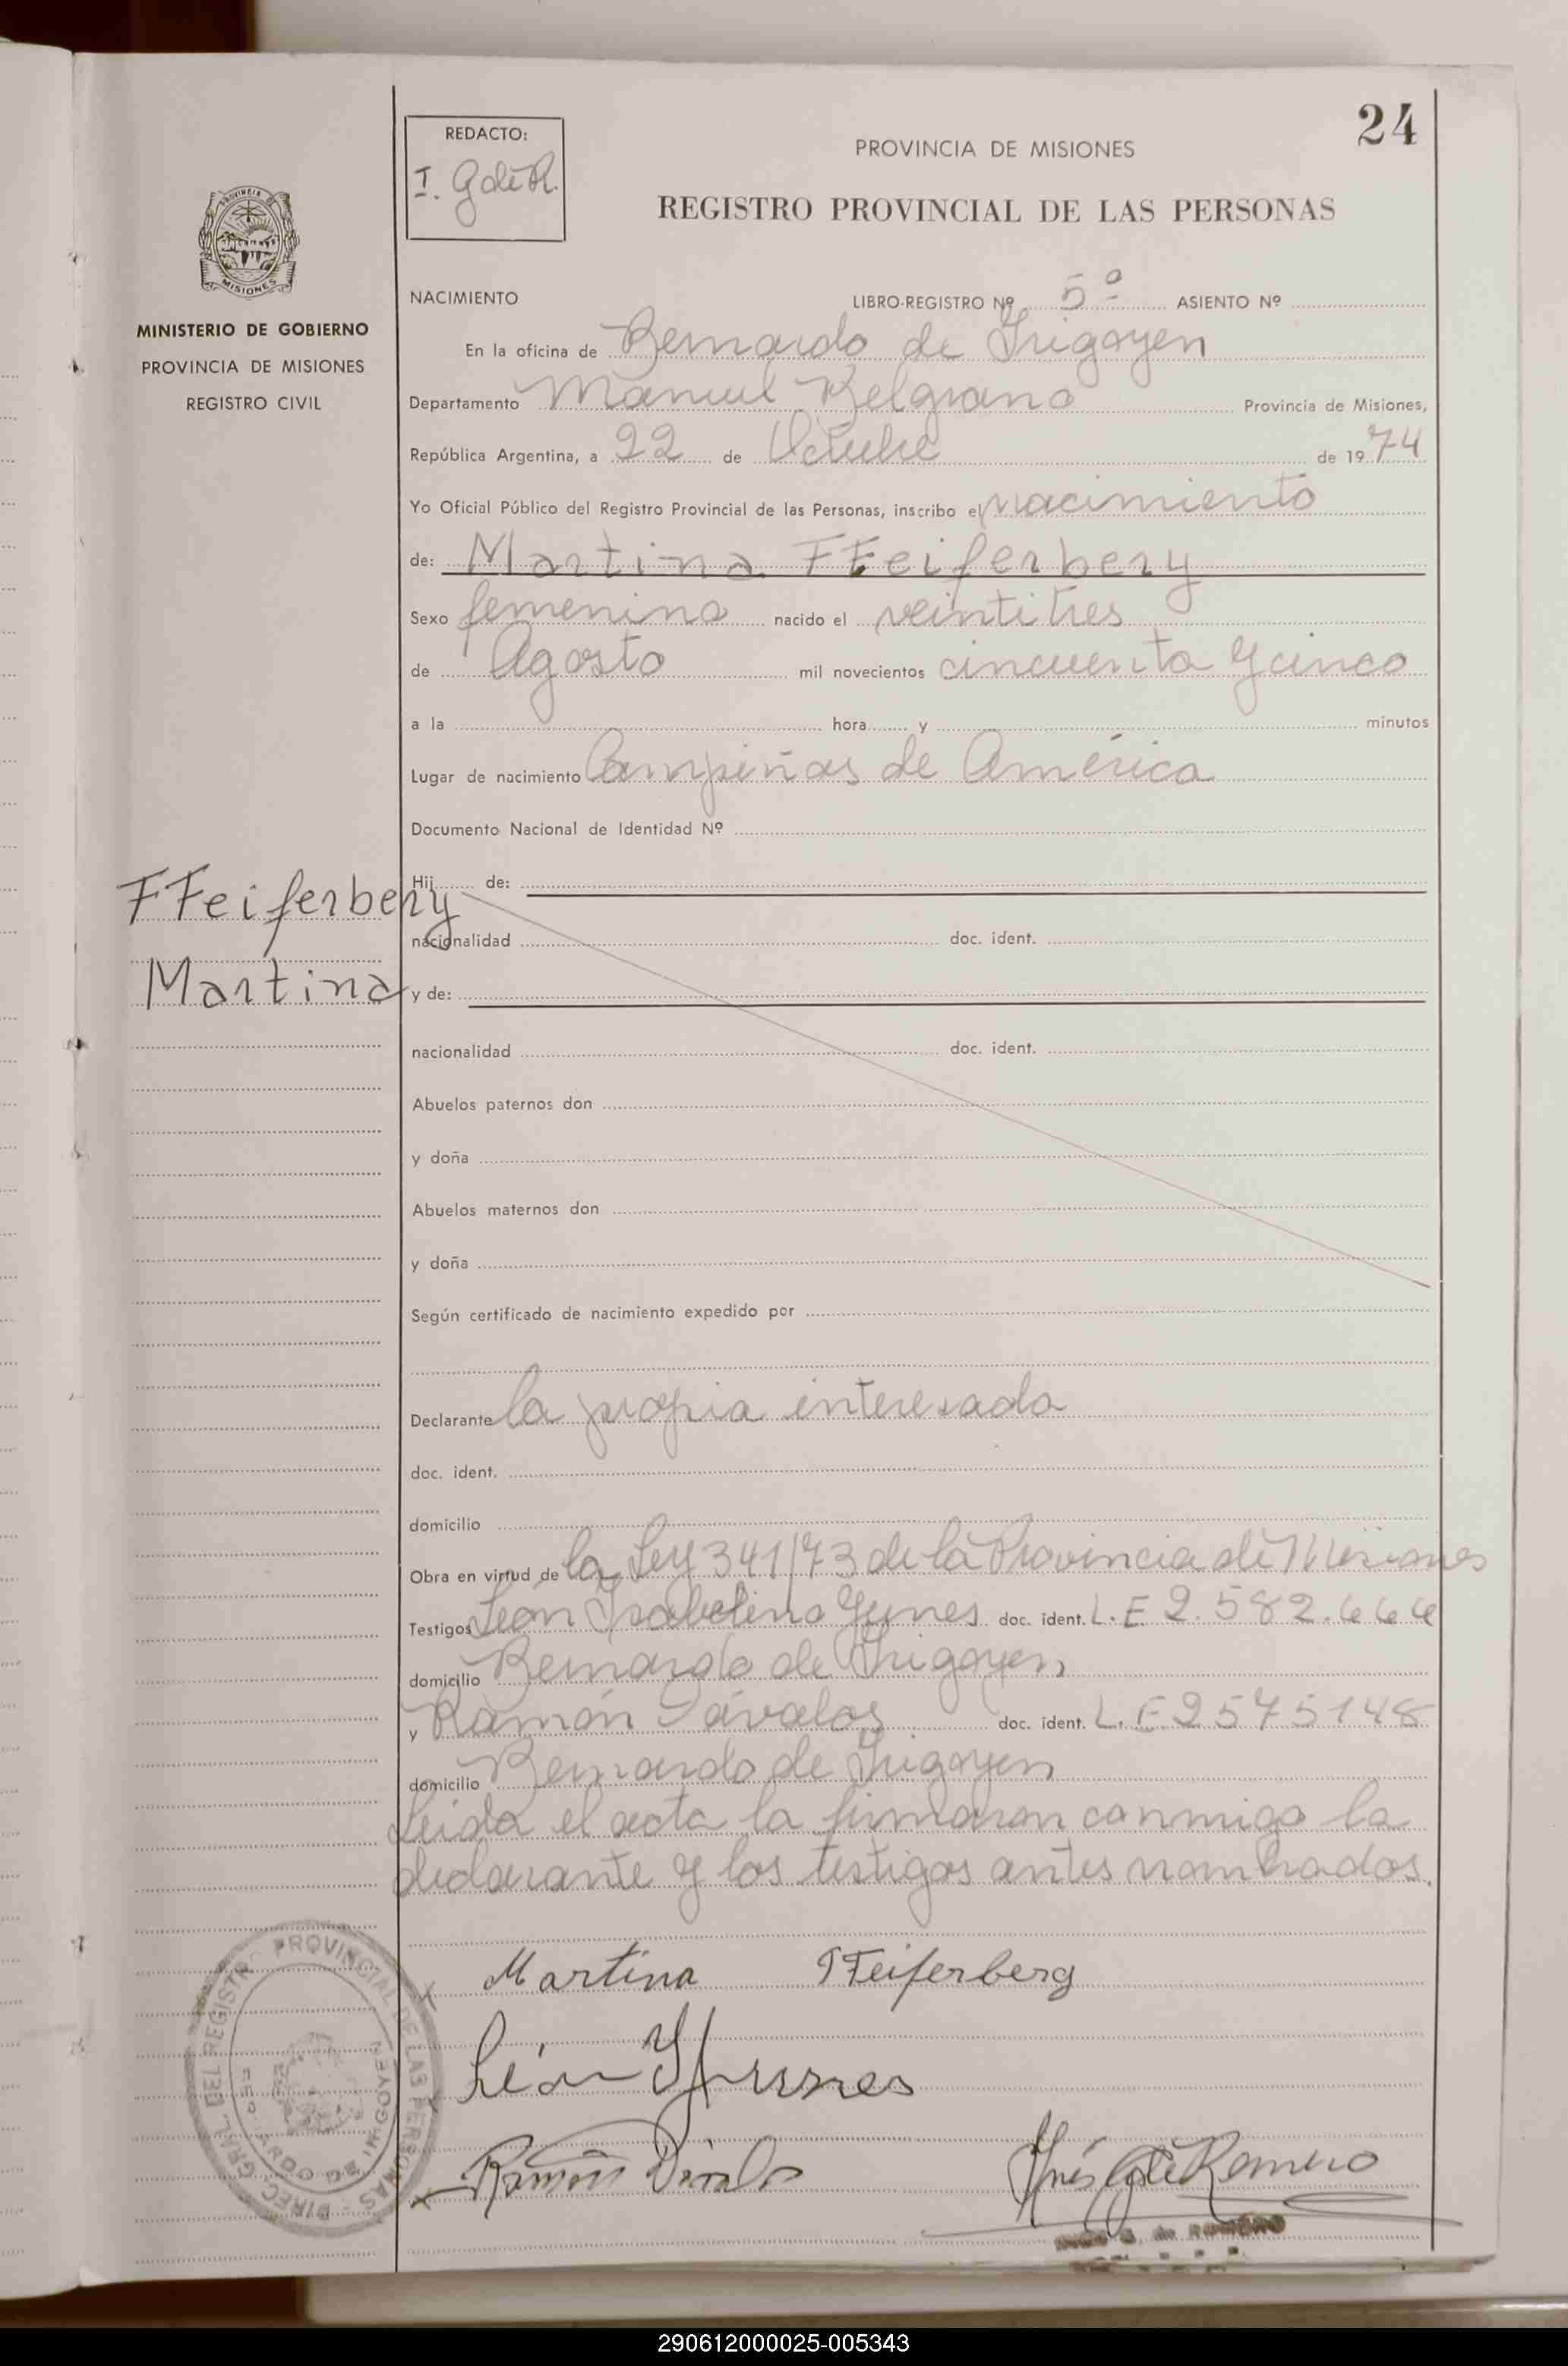 24
REDACTO:
I. G de R.
PROVINCIA DE MISIONES
REGISTRO PROVINCIAL DE LAS PERSONAS
PROVINCIA DE
MISIONES
MINISTERIO DE GOBIERNO
PROVINCIA DE MISIONES
REGISTRO CIVIL
NACIMIENTO LIBRO-REGISTRO Nº 5º ASIENTO Nº
En la oficina de Bernardo de Irigoyen
Departamento Manuel Belgrano Provincia de Misiones,
República Argentina, a 22 de Octubre de 1974
Yo Oficial Público del Registro Provincial de las Personas, inscribo el nacimiento
de: Martina FFeiferbery
Sexo femenino nacido el veintitres
de Agosto mil novecientos cincuenta y cinco
a la hora y minutos
Lugar de nacimiento Campiñas de América
Documento Nacional de Identidad Nº
Hij de:
FFeiferbery
nacionalidad doc. ident.
Martina
y de:
nacionalidad doc. ident.
Abuelos paternos don
y doña
Abuelos maternos don
y doña
Según certificado de nacimiento expedido por
Declarante la propia interesada
doc. ident.
domicilio
Obra en virtud de la Ley 341/73 de la Provincia de Misiones
Testigos León Isabelino Yunes doc. ident. L.E 2.582.444
domicilio Bernardo de Irigoyen
y Ramón Dávalos doc. ident. L.E 2575148
domicilio Bernardo de Irigoyen
Leida el acta la firmaron conmigo la
declarante y los testigos antes nombrados.
x Martina FFeiferberg
León Yunes
x Ramón Dávalos Inés G de Romero
DIREC. GRAL. DEL REGISTRO PROVINCIAL DE LAS PERSONAS
BERNARDO DE IRIGOYEN
290612000025-005343